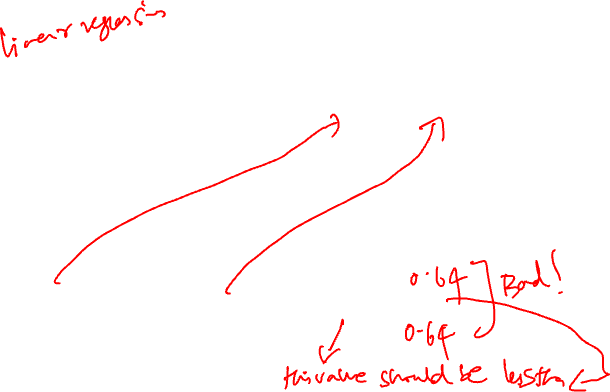 linear regression
0.64
Bad!
0.64
this value should be less than